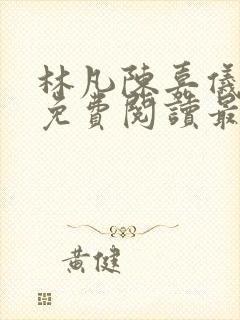 林凡陳嘉儀
免費閱讀最
黃健